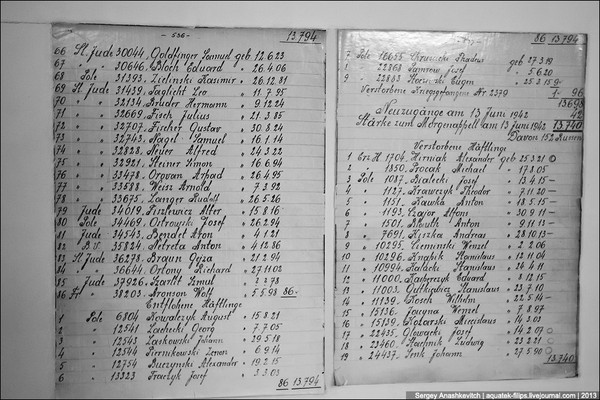 - 536 -
13794
66 Sl. Jude 30044, Goldfinger Samuel geb. 12.6.23
67 " " 30646, Bloch Eduard " 26.4.06
68 Pole 31393, Zielinski Kasimir " 26.12.81
69 Sl. Jude 31439, Saglicht Leo " 11.7.95
70 " " 32134, Bruder Hermann " 9.12.24
71 " " 32669, Fisch Julius " 21.3.85
72 " " 32707, Fischer Gustav " 30.8.24
73 " " 32743, Nagel Samuel " 16.1.14
74 " " 32828, Heuer Alfred " 24.3.22
75 " " 32921, Steiner Simon " 16.6.94
76 " " 33478, Orgovan Arpad " 26.4.95
77 " " 33588, Weisz Arnold " 7.3.92
78 " " 33675, Langer Rudolf " 26.5.26
79 Jude 34019, Fiszlewicz Alter " 15.8.16
80 Pole 34469, Ostrowski Josef " 26.2.94
81 Jude 34543, Bendet Aron " 4.1.21
82 B.V. 35824, Petreta Anton " 4.12.86
83 Sl. Jude 36278, Braun Geza " 21.2.94
84 " " 36644, Ortony Richard " 27.11.02
85 Jude 37926, Szarlit Szmul " 2.2.78
86 Fr. " 38203, Aronson Wolf " 5.5.98 86.-
Entflohene Häftlinge
1 Pole 6804 Kowalczyk August " 15.8.21
2 " 12541 Lachecki Georg " 7.7.05
3 " 12543 Laskowski Johann " 29.5.18
4 " 12544 Piernikowski Zenon " 6.9.14
5 " 12754 Buczynski Alexander " 19.2.15
6 " 13323 Trojczyk Josef " 3.3.03
86 13794
86 13794
7 Pole 16655 Chruscicki Thadeus geb 27.3.19
8 " 22868 Pamrow Josef " 5.6.20
9 " 22883 Stoczewski Eugen " 25.3.15 9.-
Verstorbene Kriegsgefangene Nr 2379 1.- 96
13698
Neuzugänge am 13 Juni 1942 42
Stärke zum Morgenappell am 13 Juni 1942 13740
Davon 152 Russen
Verstorbene Häftlinge
1 Erz. H. 1704, Hirniak Alexander geb 25.3.21
2 " " 1850, Procak Michael " 17.8.05
3 Pole 1087, Bialecki Josef " 13.4.15 -
4 " 1127, Krawczyk Theodor " 7.11.20 -
5 " 1151, Kawka Anton " 18.5.15 -
6 " 1193, Czajor Alfons " 30.9.11 -
7 " 1501, Kbouth Anton " 9.11.11
8 " 7691, Kiszka Andreas " 28.10.13 -
9 " 10295, Cieminski Wenzel " 2.2.06
10 " 10296, Knapik Stanislaus " 12.11.04
11 " 10994, Kalacki Stanislaus " 26.4.11
12 " 11000, Kasprczyk Eduard " 3.12.15
13 " 11003, Guttenberg Stanislaus " 23.7.10
14 " 11139, Kosch Wilhelm " 22.5.14 -
15 " 15136, Jasyna Wenzel " 7.8.97
16 " 15139, Kozarski Miecislaus " 14.3.03
17 " 22435, Glowacki Josef " 14.2.07
18 " 23460, Stachnik Ludwig " 23.2.21
19 " 24437, Srnk Johann " 27.5.90
13740
Sergey Anashkevitch | aquatek-filips.livejournal.com | 2013